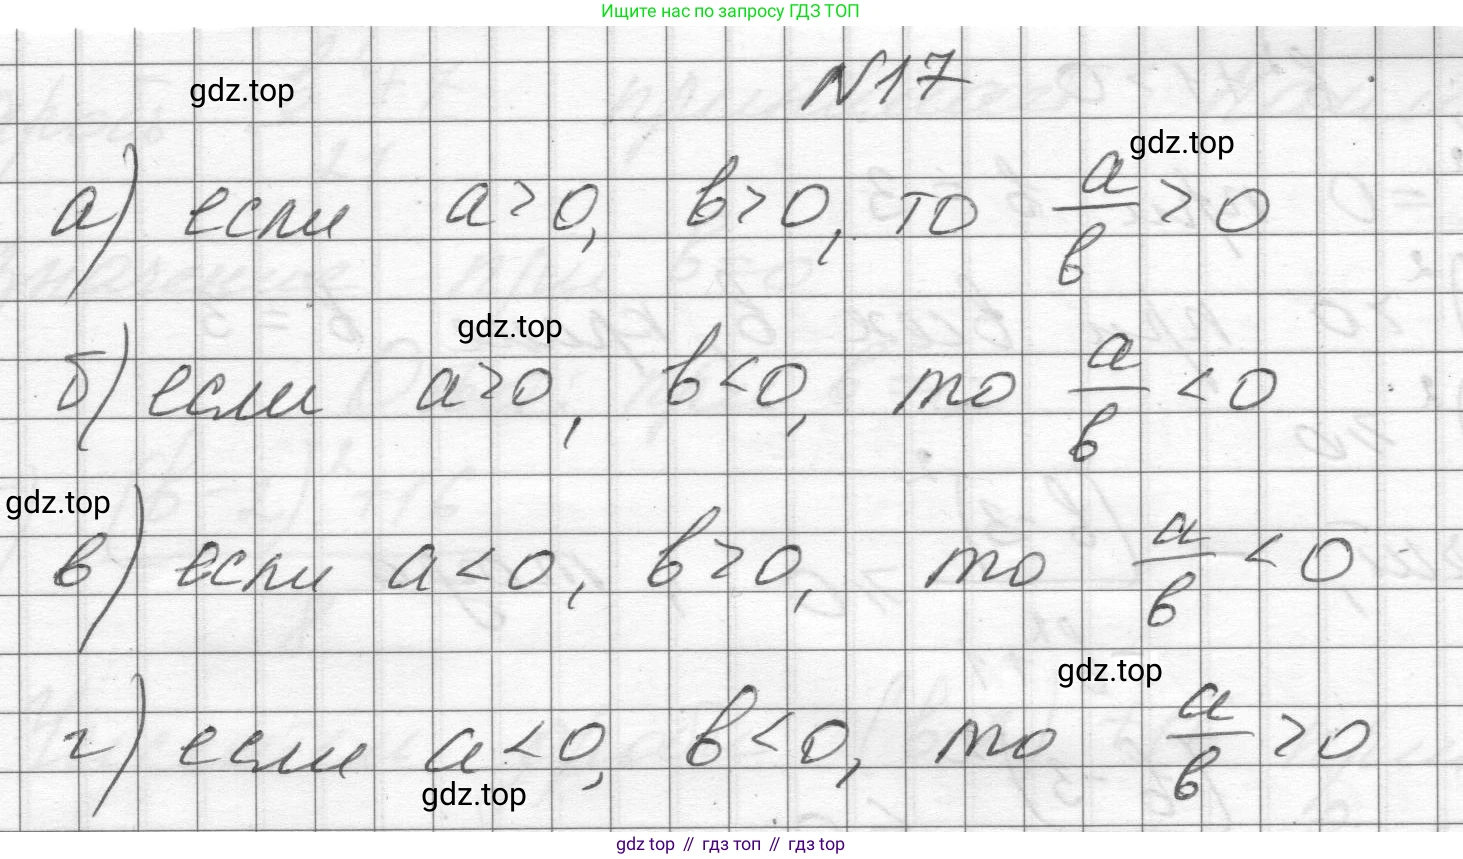 Ищите нас по запросу ГДЗ ТОП
N17
gdz.top
gdz.top
а) если a>0, b>0, то a/b >0
gdz.top
б) если a>0, b<0, то a/b <0
gdz.top
в) если a<0, b>0, то a/b <0
gdz.top
г) если a<0, b<0, то a/b >0
gdz.top
gdz top // гдз топ // gdz top